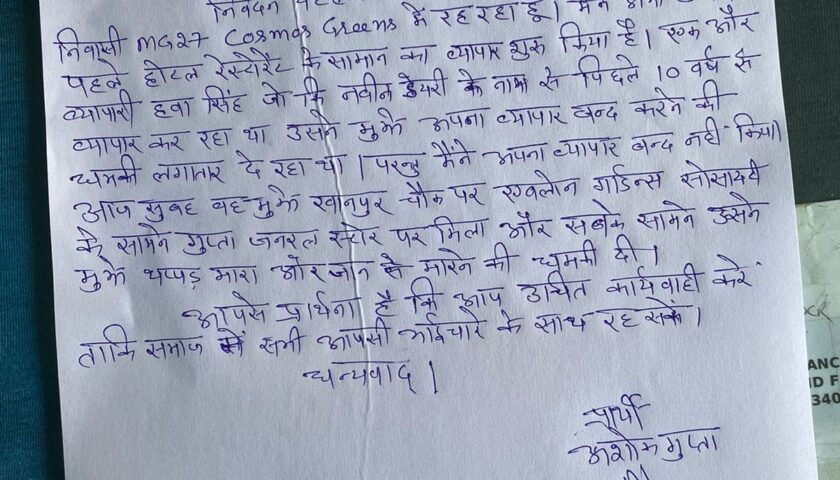 निवेदन
निवासी MG27 Cosmos Greens में रह रहा हूँ। मैंने
पहले होटल रेस्टोरेंट के सामान का व्यापार शुरू किया है। एक और
व्यापारी हवा सिंह जो कि नवीन डेयरी के नाम से पिछले 10 वर्ष से
व्यापार कर रहा था उसने मुझे अपना व्यापार बन्द करने की
धमकी लगातार दे रहा था। परन्तु मैंने अपना व्यापार बन्द नहीं किया।
आज सुबह वह मुझे खानपुर चौक पर एवलोन गार्डन्स सोसायटी
के सामने गुप्ता जनरल स्टोर पर मिला और सबके सामने उसने
मुझे थप्पड़ मारा और जान से मारने की धमकी दी।
आपसे प्रार्थना है कि आप उचित कार्यवाही करें
ताकि समाज में सभी आपसी भाईचारे के साथ रह सकें।
धन्यवाद।
प्रार्थी
अशोक गुप्ता
ANC
ID F
340